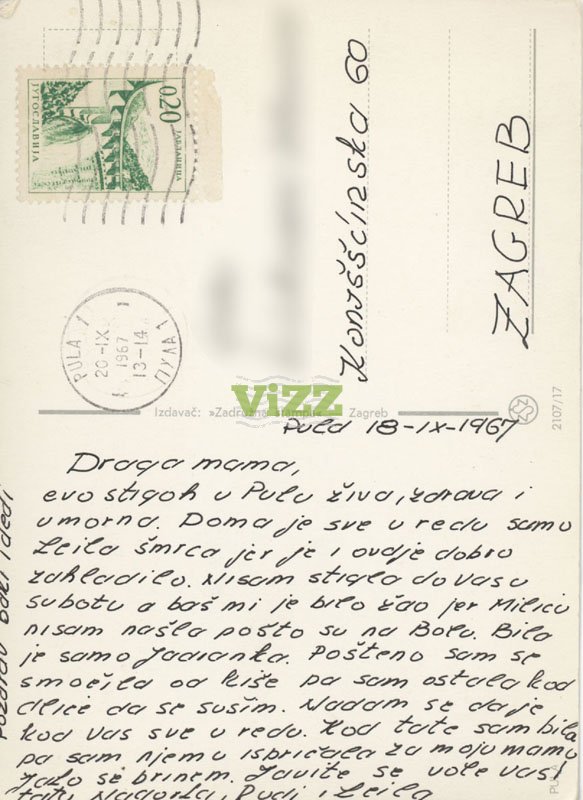 0,20
ЈАБЛАНИЦА
ЈУГОСЛАВИЈА
Konjšćinska 60
ZAGREB
PULA 1
20-IX
1967
13-14
ПУЛА 1
ViZZ
Izdavač: »Zadružna štampa« Zagreb
2107/17
PULA
Pula 18-IX-1967
Draga mama,
evo stigoh u Pulu živa, zdrava i
umorna. Doma je sve u redu samo
Leila šmrca jer je i ovdje dobro
zahladilo. Nisam stigla do vas u
subotu a baš mi je bilo žao jer Milicu
nisam našla pošto su na Bolu. Bila
je samo Jadranka. Pošteno sam se
smočila od kiše pa sam ostala kod
Alice da se sušim. Nadam se da je
kod vas sve u redu. Kod tate sam bila
pa sam njemu ispričala za moju mamu
Jako se brinem. Javite se, vole vas!
Nagorka, Rudi i Leila
Pozdrav baki i dedi